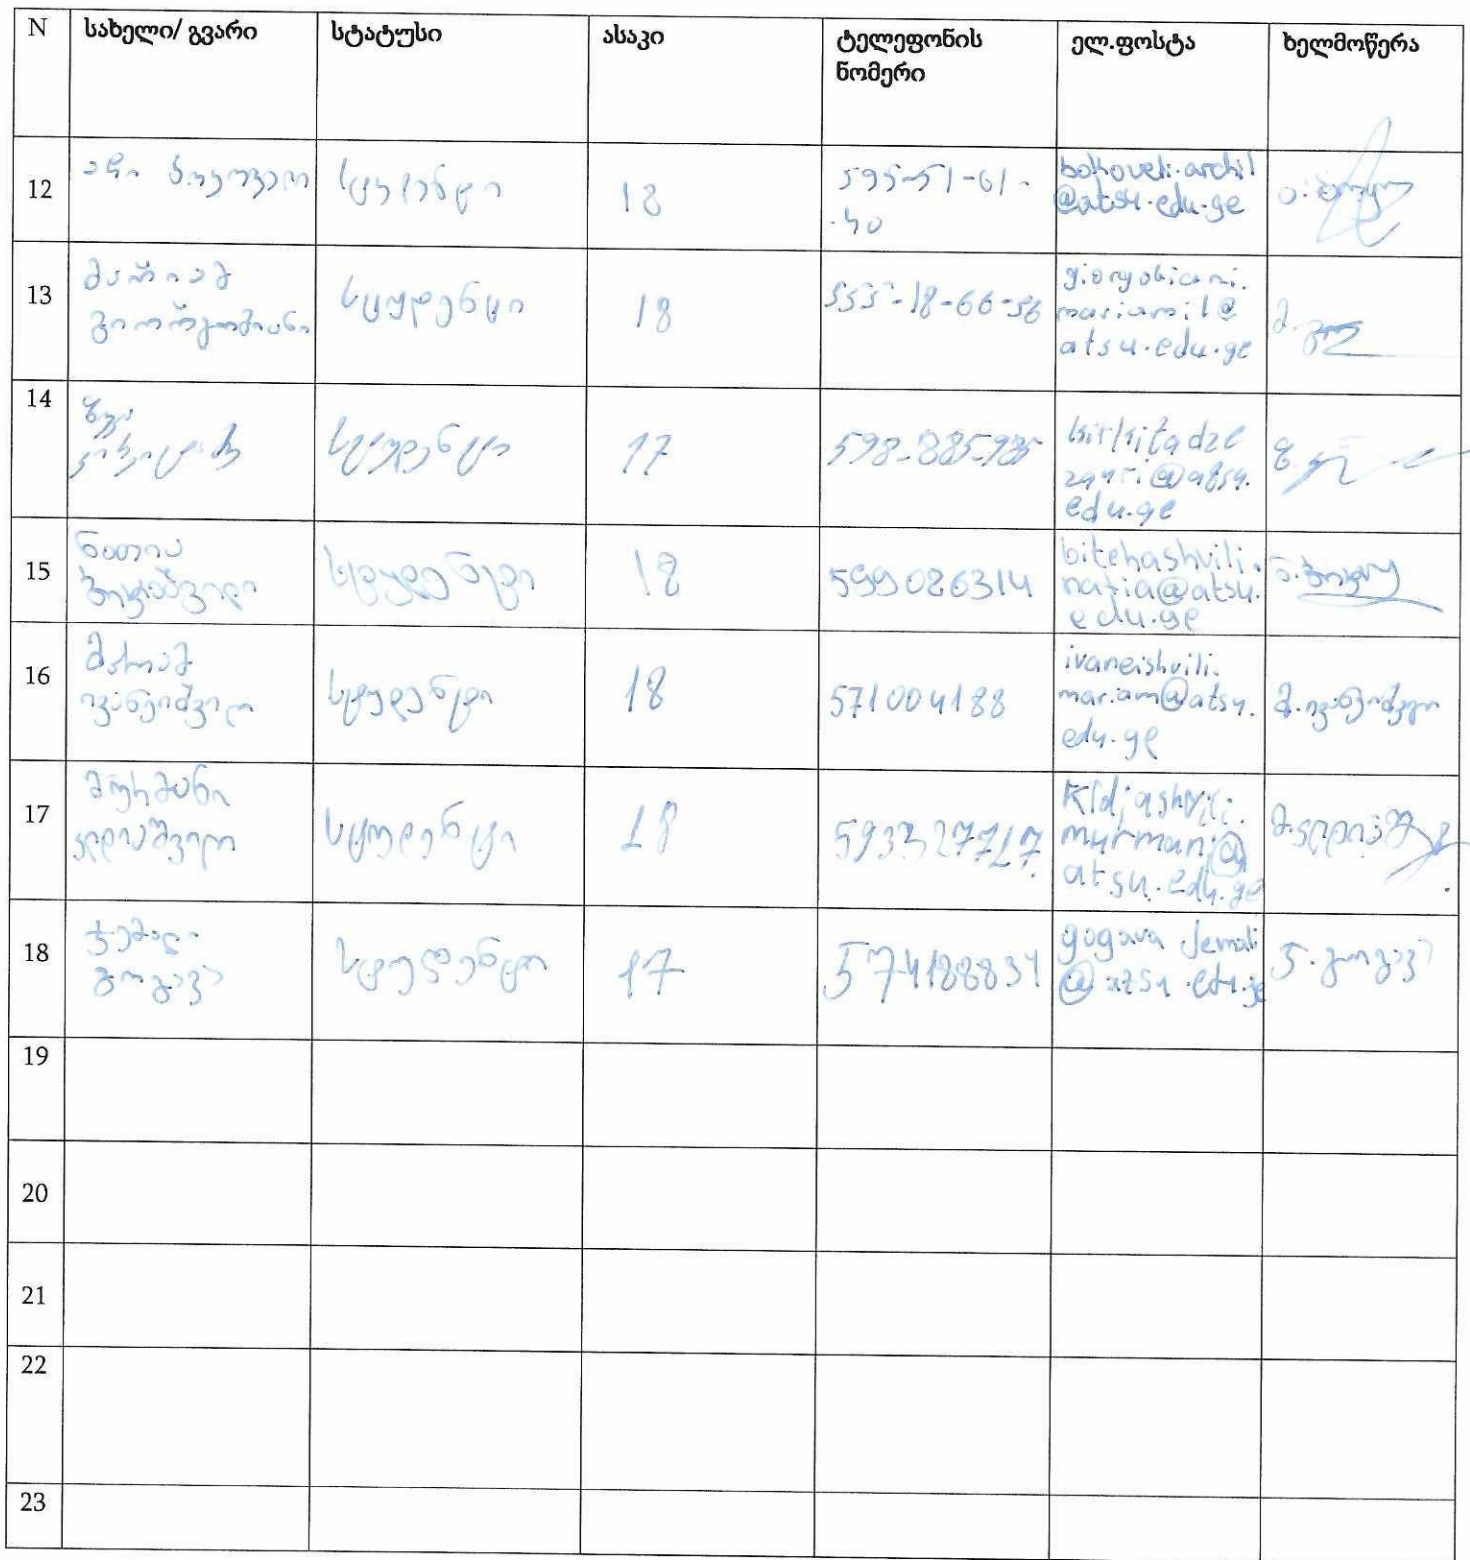 N სახელი/ გვარი სტატუსი ასაკი ტელეფონის ელ.ფოსტა ხელმოწერა
ნომერი
12 სტუდენტი 18 595-51-61-
.40
@atsu.edu.ge
13 მარიამ
გიორგობიანი
სტუდენტი 18 555-18-66-56
giorgobiani.
mariami1@
atsu.edu.ge
14 სტუდენტი 17 598-885-985
kirkitadze
zauri@atsu.
edu.ge
15 ნათია
სტუდენტი 18 599026314
bitchashvili.
natia@atsu.
edu.ge
16 მარიამ
ივანეიშვილი
სტუდენტი 18 571004188
ivaneishvili.
mariam@atsu.
edu.ge
მ.ივანეიშვილი
17 მურმანი
კლდიაშვილი
სტუდენტი 18 593327717
kldiashvili.
murmani@
atsu.edu.ge
18 ჯემალი
გოგავა
სტუდენტი 17 574188834
gogava jemali
@atsu.edu.ge
ჯ.გოგავა
19
20
21
22
23